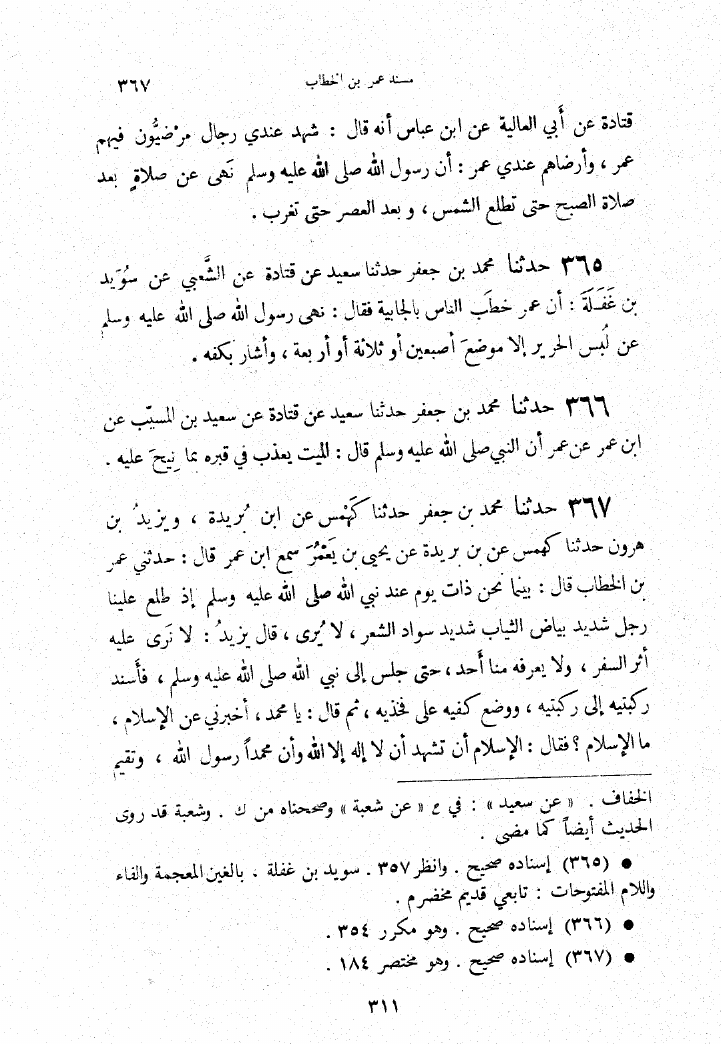 مسند عمر بن الخطاب ٣٦٧
قتادة عن أَبي العالية عن ابن عباس أنه قال : شهد عندي رجال مرْضيُّون فيهم
عمر ، وأرضاهم عندي عمر : أن رسول الله صلى الله عليه وسلم نَهى عن صلاةٍ بعد
صلاة الصبح حتى تطلع الشمس ، وبعد العصر حتى تغرب .
٣٦٥ حدثنا محمد بن جعفر حدثنا سعيد عن قتادة عن الشَّعبي عن سُوَيد
بن غَفَلَةَ : أن عمر خطَب الناس بالجابية فقال : نهى رسول الله صلى الله عليه وسلم
عن لُبس الحرير إلا موضعَ أصبعين أو ثلاثة أو أربعة ، وأشار بكفه .
٣٦٦ حدثنا محمد بن جعفر حدثنا سعيد عن قتادة عن سعيد بن المسيّب عن
ابن عمر عن عمر أن النبي صلى الله عليه وسلم قال : الميت يعذب في قبره بما نِيحَ عليه .
٣٦٧ حدثنا محمد بن جعفر حدثنا كَهْمَس عن ابن بُريدة ، ويزيدُ بن
هرون حدثنا كهمس عن بن بريدة عن يحيى بن يَعْمُرَ سمع ابن عمر قال : حدثني عمر
بن الخطاب قال : بينما نحن ذات يوم عند نبي الله صلى الله عليه وسلم إذ طلع علينا
رجل شديد بياض الثياب شديد سواد الشعر ، لا يُرى ، قال يزيدُ : لا نَرى عليه
أثر السفر ، ولا يعرفه منا أَحد ، حتى جلس إلى نبي الله صلى الله عليه وسلم ، فأسند
ركبتيه إلى ركبتيه ، ووضع كفيه على فخذيه ، ثم قال : يا محمد ، أخبرني عن الإسلام ،
ما الإسلام ؟ فقال : الإسلام أن تشهد أن لا إله إلا الله وأن محمداً رسول الله ، وتقيم
الخفاف . « عن سعيد » : في ع « عن شعبة » وصححناه من ك . وشعبة قد روى
الحديث أيضاً كما مضى .
● (٣٦٥) إسناده صحيح . وانظر ٣٥٧ . سويد بن غفلة ، بالغين المعجمة والفاء
واللام المفتوحات : تابعي قديم مخضرم .
● (٣٦٦) إسناده صحيح . وهو مكرر ٣٥٤ .
● (٣٦٧) إسناده صحيح . وهو مختصر ١٨٤ .
٣١١